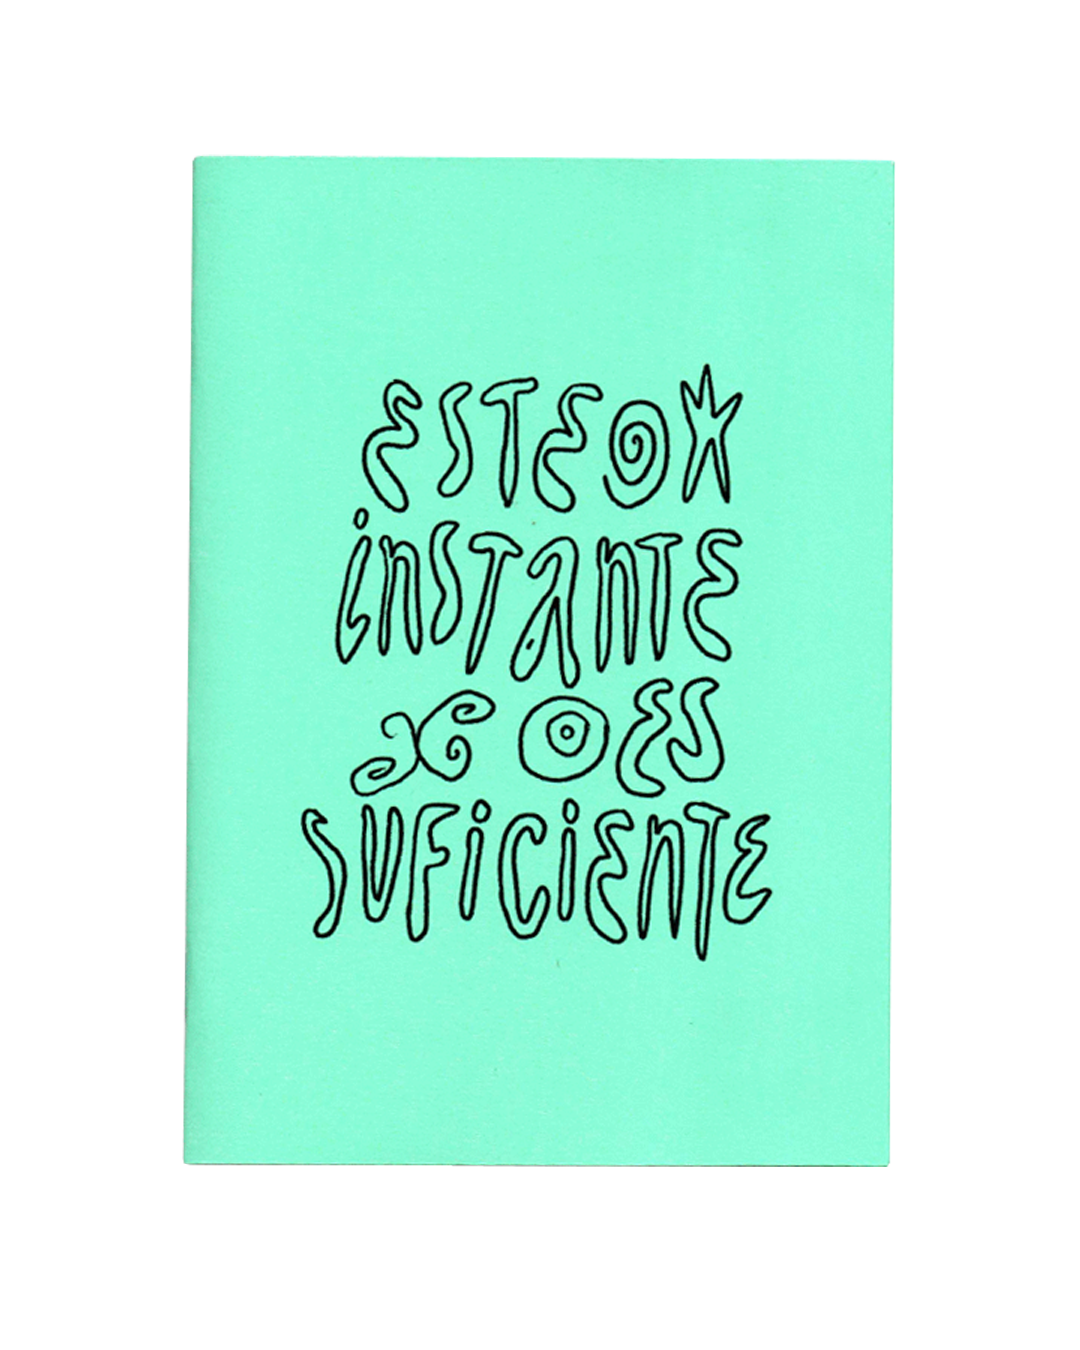 ESTE
INSTANTE
ES
SUFICIENTE